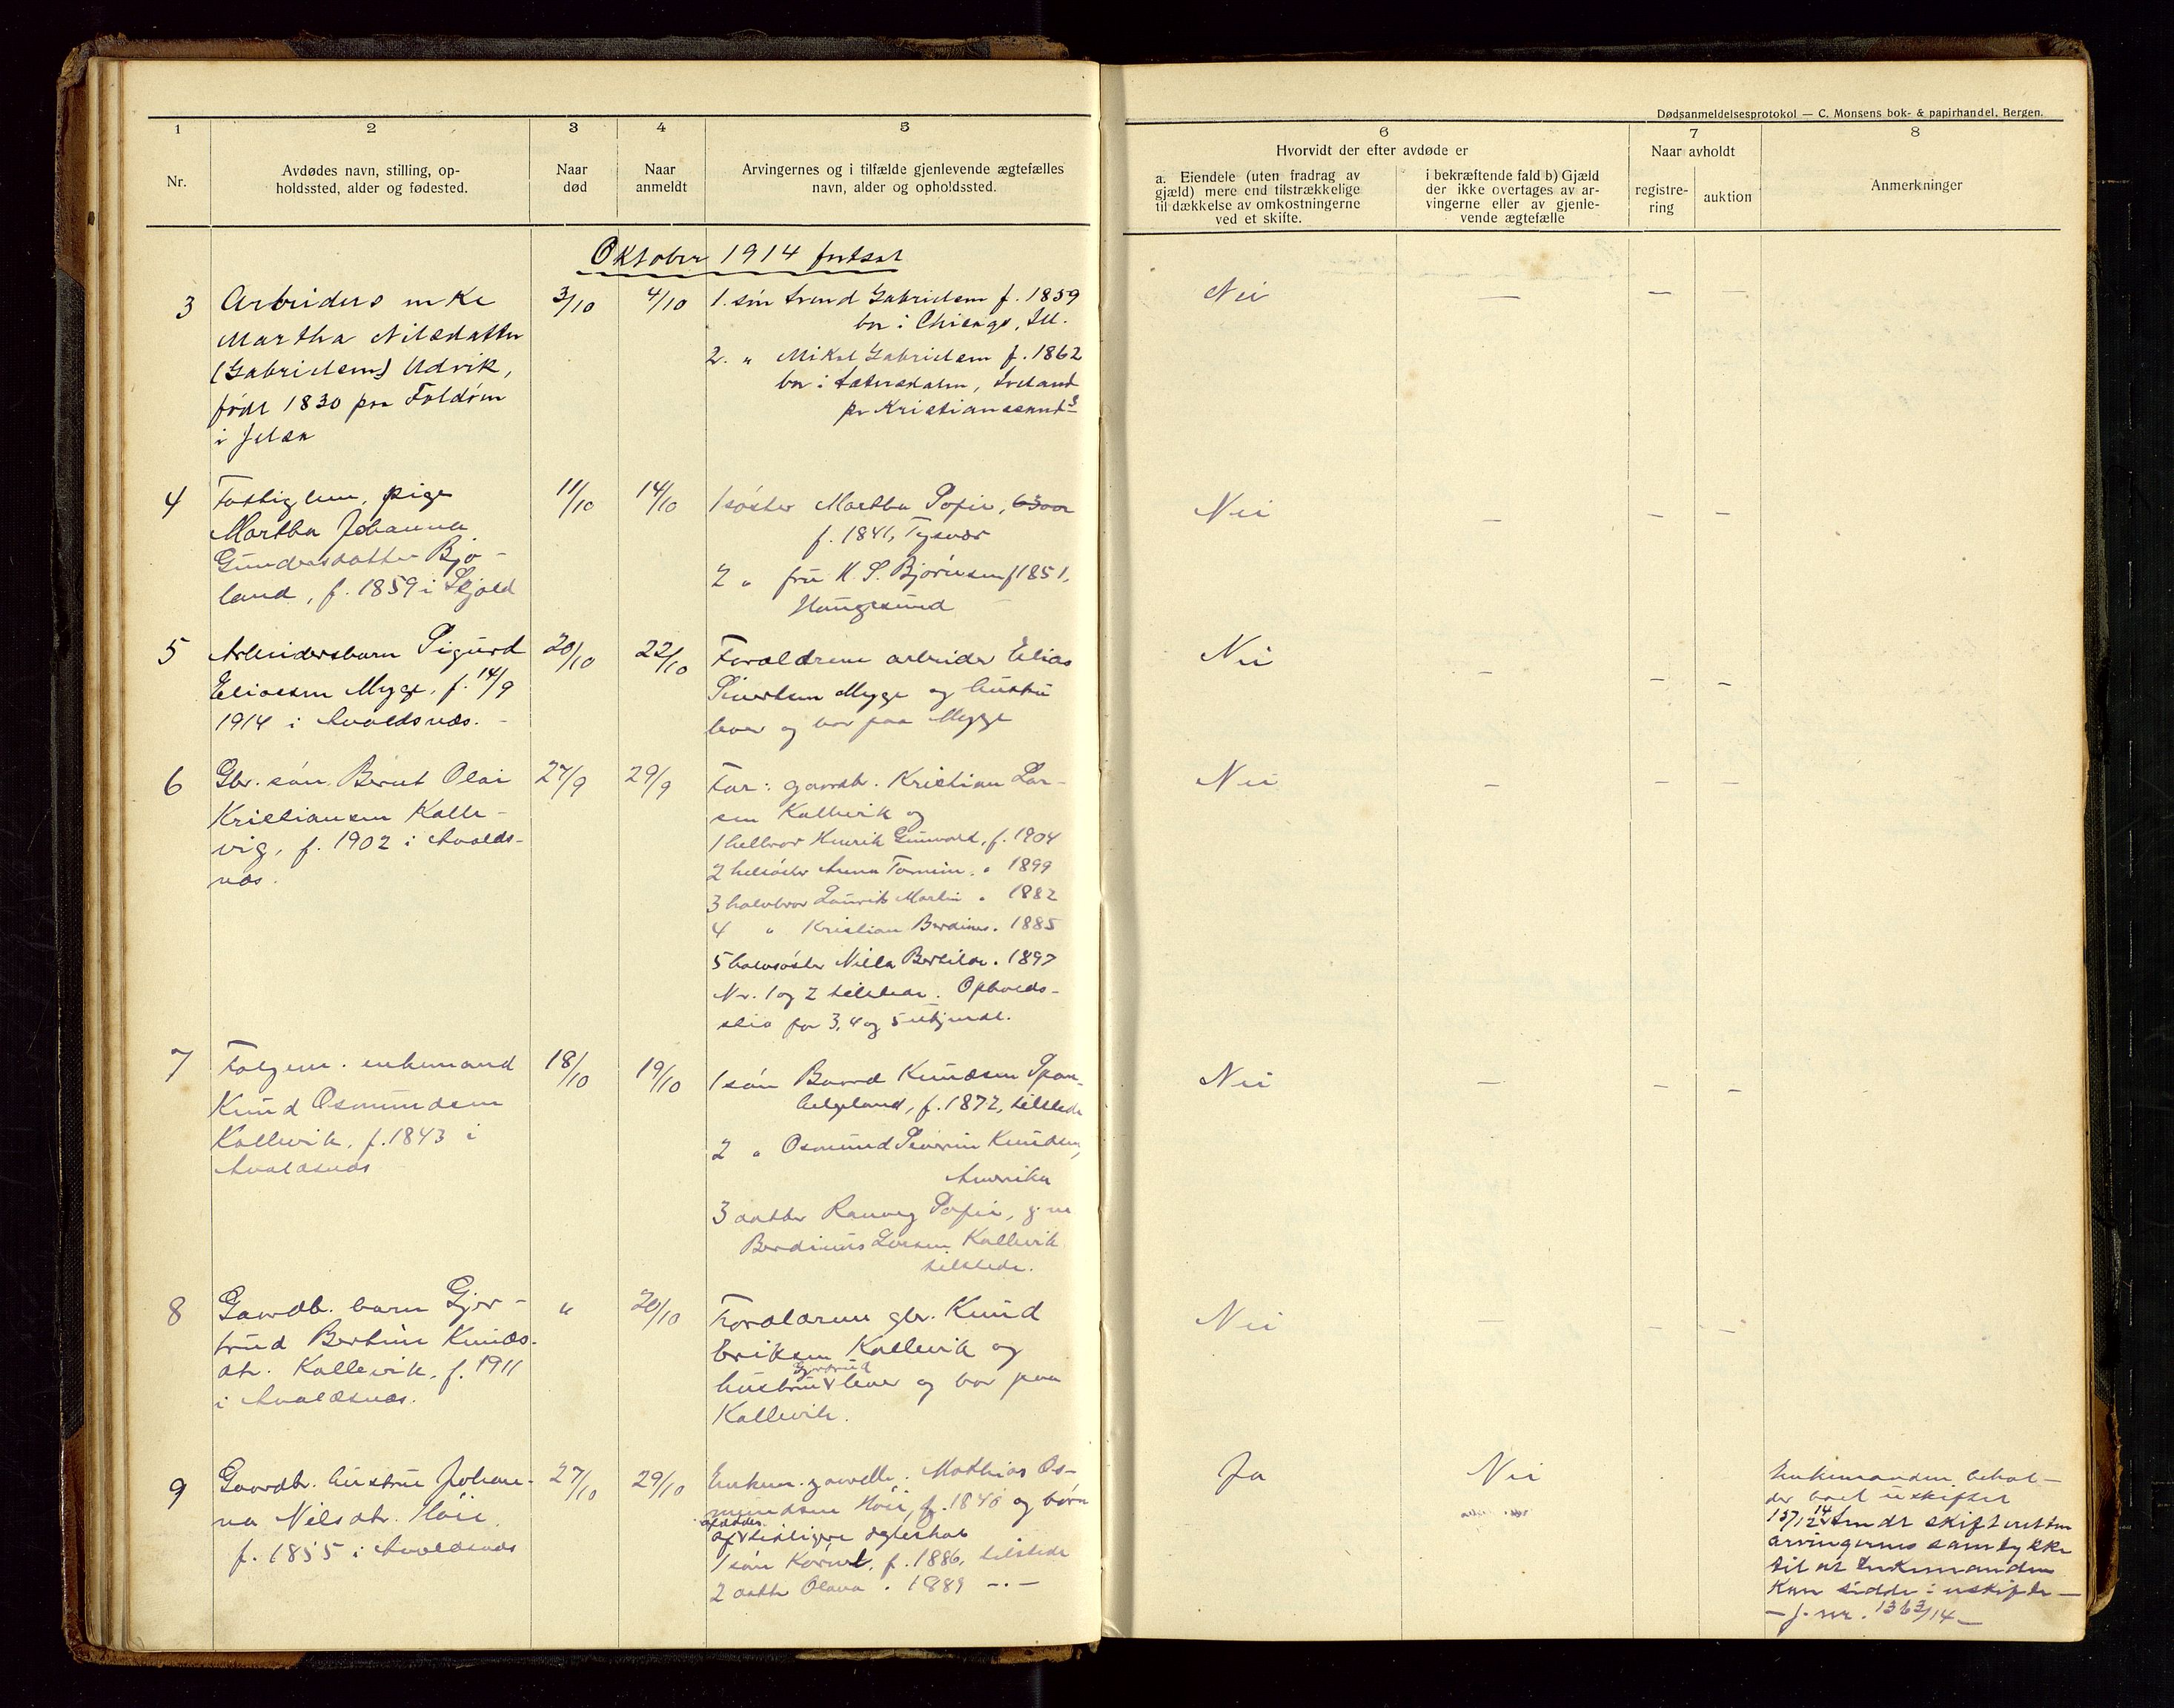 Dødsanmeldelsesprotokol — C. Monsens bok- & papirhandel, Bergen.
1 2 3 4 5 6 7 8
Nr.
Avdødes navn, stilling, op-
holdssted, alder og fødested.
Naar
død
Naar
anmeldt
Arvingernes og i tilfælde gjenlevende ægtefælles
navn, alder og opholdssted.
Hvorvidt der efter avdøde er
a. Eiendele (uten fradrag av
gjæld) mere end tilstrækkelige
til dækkelse av omkostningerne
ved et skifte.
i bekræftende fald b) Gjæld
der ikke overtages av ar-
vingerne eller av gjenle-
vende ægtefælle
Naar avholdt
registre-
ring
auktion
Anmerkninger
Oktober 1914 fortsat
3
Arbeiders enke
Martha Nilsdatter
(Gabrielsen) Udvik,
født 1830 paa Foldøen
i Jelsa
3/10
4/10
1. søn Svend Gabrielsen f. 1859
bor i Chicago, Ill.
2. " Mikal Gabrielsen f. 1862
bor i Sætersdalen,
pr Kristianssand S
Nei — — —
4
Fattiglem, pige
Martha Johanna
Gundersdatter Bjo-
land, f. 1859 i Skjold
11/10
14/10
1 søster Martha Sofie, 63 aar
f. 1841, Tysvær
2 " fru K. S. Bjørnsen f 1851,
Haugesund
Nei — — —
5
Arbeidersbarn Sigurd
Eliassen Mygge, f. 14/9
1914 i Avaldsnæs. -
20/10
22/10
Forældrene arbeider Elias
Sivertsen Mygge og hustru
lever og bor paa Mygge
Nei — — —
6
Gbr. søn Bernt Olai
Kristiansen Kalle-
vig, f. 1902 i Avalds-
næs.
27/9
29/9
Far: gaardb. Kristian Lar-
sen Kallevik og
1 helbror Henrik Gunvald, f. 1904
2 helsøster Anna Tomine " 1899
3 halvbror Laurits Martin " 1882
4 " Kristian Berdines " 1885
5 halvsøster Nilla Bertilde " 1897
Nr. 1 og 2 tilstede. Opholds-
sted for 3, 4 og 5 ukjendt.
Nei — — —
7
Folgem. enkemand
Knud Osmundsen
Kallevik, f. 1843 i
Avaldsnæs
18/10
19/10
1 søn Baard Knudsen Span-
helgeland, f. 1872, tilstede
2 " Osmund Severin Knudsen,
Amerika
3 datter Ranveig Sofie, g. m
Berdinus Larsen Kallevik
tilstede.
Nei — — —
8
Gaardb. barn Gjer-
trud Bertine Knuds-
dtr. Kallevik, f. 1911
i Avaldsnæs.
"
20/10
Forældrene gbr. Knud
Eriksen Kallevik og
hustru Gjertrud lever og bor paa
Kallevik.
Nei — — —
9
Gaardbr. hustru Johan-
na Nilsdtr. Høie
f. 1855 i Avaldsnæs
27/10
29/10
Enkem. gaardb. Mathias Os-
mundsen Høie, f. 1840 og børn
af afdødes tidligere ægteskab
1 søn Kornel, f. 1886, tilstede
2 datter Olava " 1889 -"-
Ja
Nei
Enkemanden behol-
der boet uskiftet
15/12 14 sendt skifteretten
arvingernes samtykke
til at Enkemanden
kan sidde i uskifte —
— j. nr. 1363/14 —